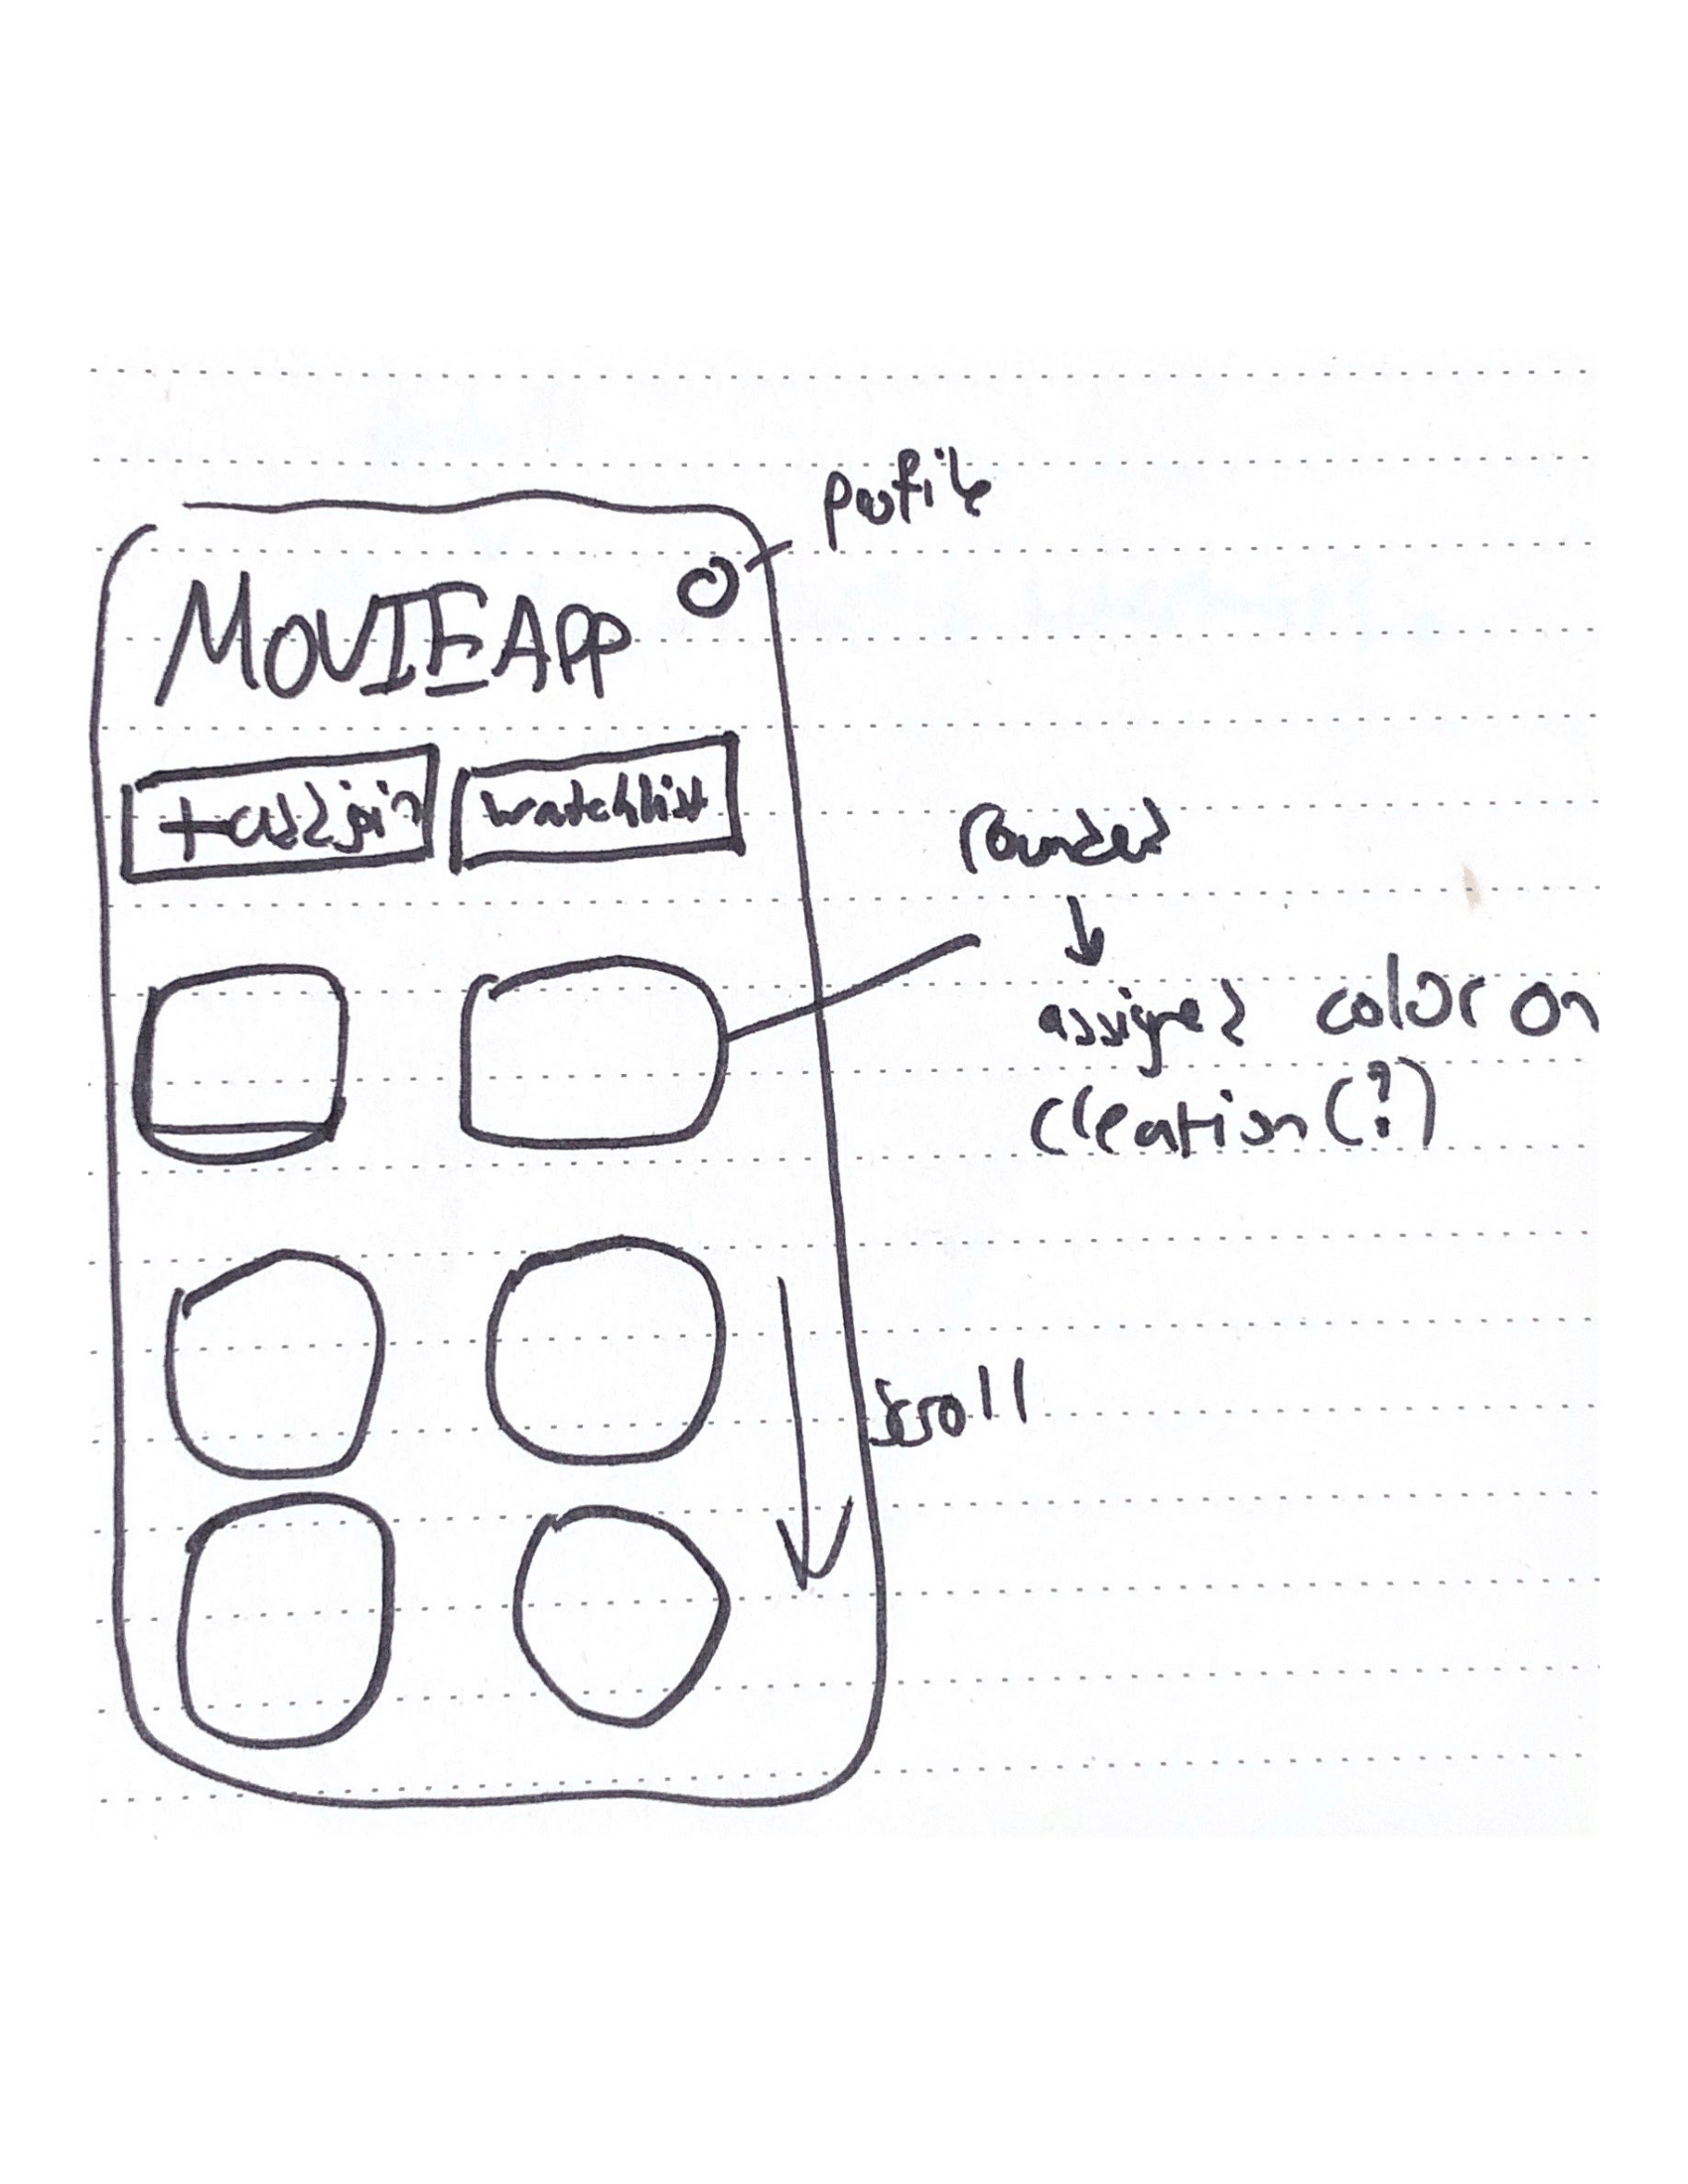 profile
MOVIE APP
+add/join
watchlist
rounded
assigned color on
creation (?)
scroll